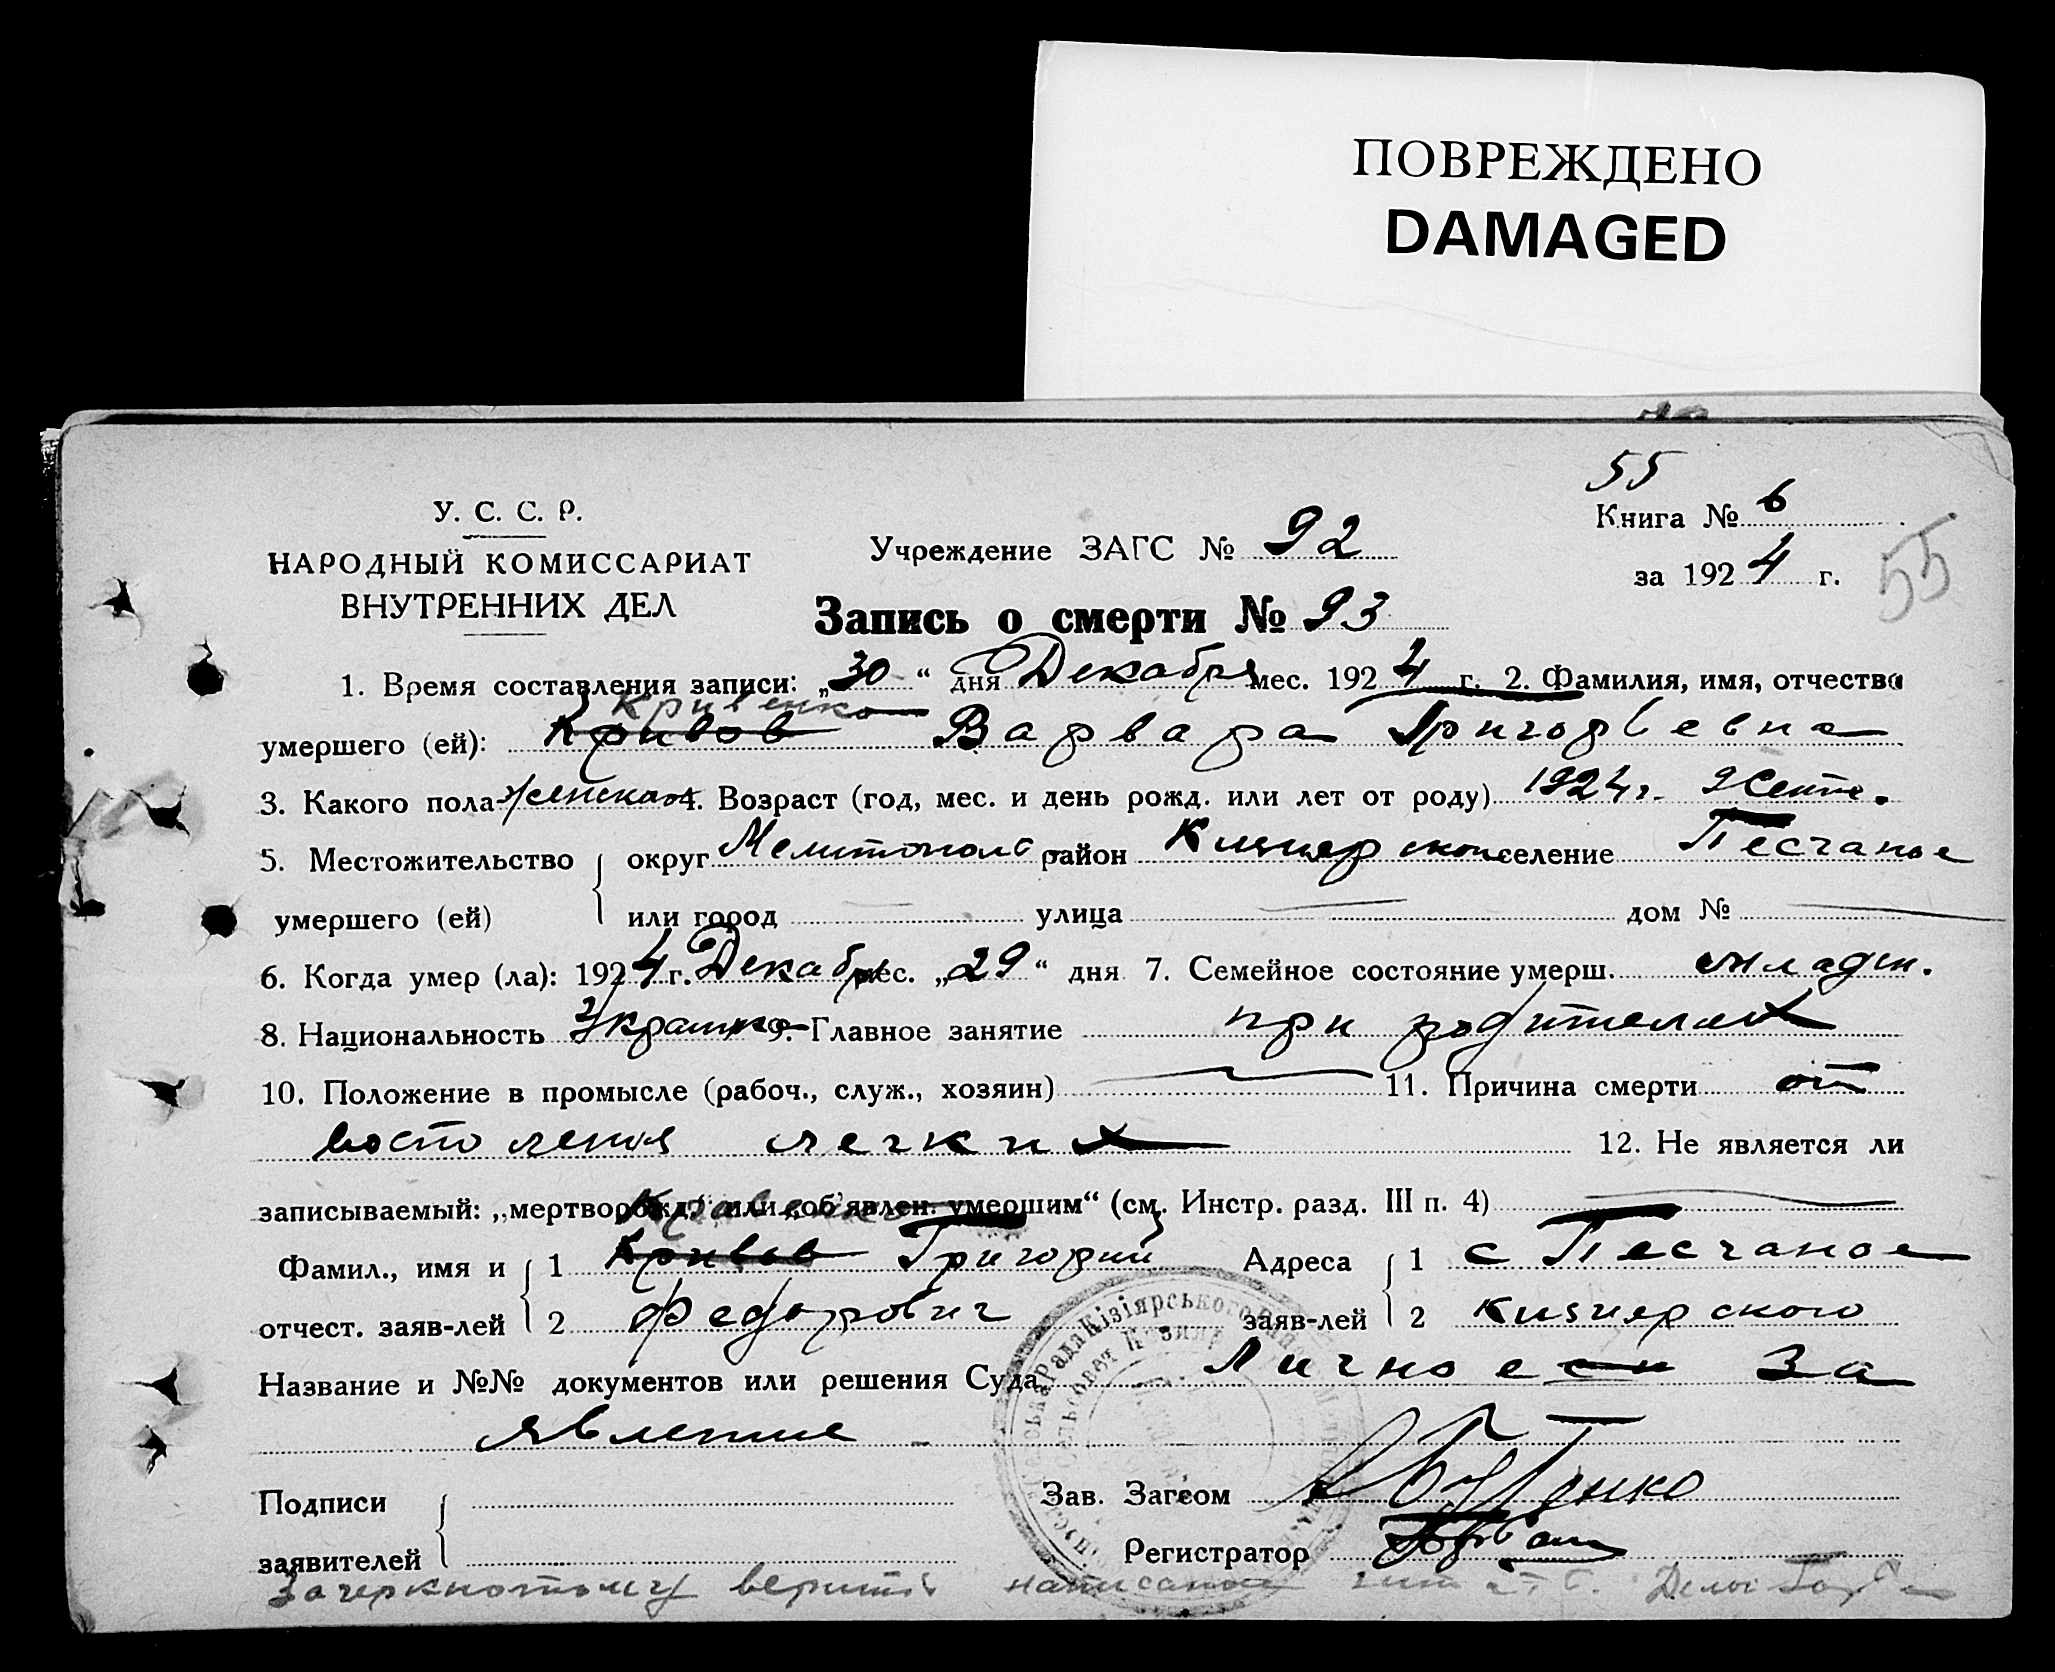 ПОВРЕЖДЕНО
DAMAGED
55
У. С. С. Р.
Книга № 6
НАРОДНЫЙ КОМИССАРИАТ
Учреждение ЗАГС № 92
за 1924 г.
55
ВНУТРЕННИХ ДЕЛ
Запись о смерти № 93
1. Время составления записи: „30“ дня Декабря мес. 1924 г. 2. Фамилия, имя, отчество
Кривенко
умершего (ей): Кривов Варвара Григорьевна
3. Какого пола женская 4. Возраст (год, мес. и день рожд. или лет от роду) 1924 г. 9 Сент.
5. Местожительство округ Мелитополь район Кизиярский селение Песчаное
умершего (ей) или город улица дом №
6. Когда умер (ла): 1924 г. Декабря мес. „29“ дня 7. Семейное состояние умерш. младен.
8. Национальность Украинка 9. Главное занятие при родителях
10. Положение в промысле (рабоч., служ., хозяин) 11. Причина смерти от
востоления легких 12. Не является ли
записываемый: „мертворожд.“ или „об'явлен. умершим“ (см. Инстр. разд. III п. 4)
Кривенко
Фамил., имя и 1 Кривов Григорий Адреса 1 с Песчаное
отчест. заяв-лей 2 Федорович заяв-лей 2 Кизиярского
Название и №№ документов или решения Суда Личное за
явление
Подписи Зав. Загсом
заявителей Регистратор
Зачеркнотому верить написаное